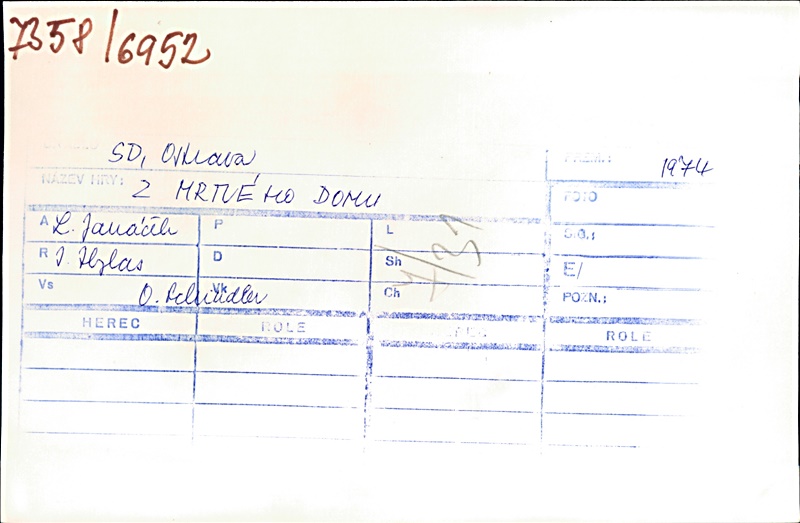 7358/6952
SD, Ostrava
PREM.: 1974
NÁZEV HRY: Z MRTVÉHO DOMU
FOTO
A L. Janáček P L
S.O.:
R I. Hylas D Sh
E/
Vs O. Schindler Vk Ch
POZN.:
4/31
HEREC ROLE HEREC ROLE